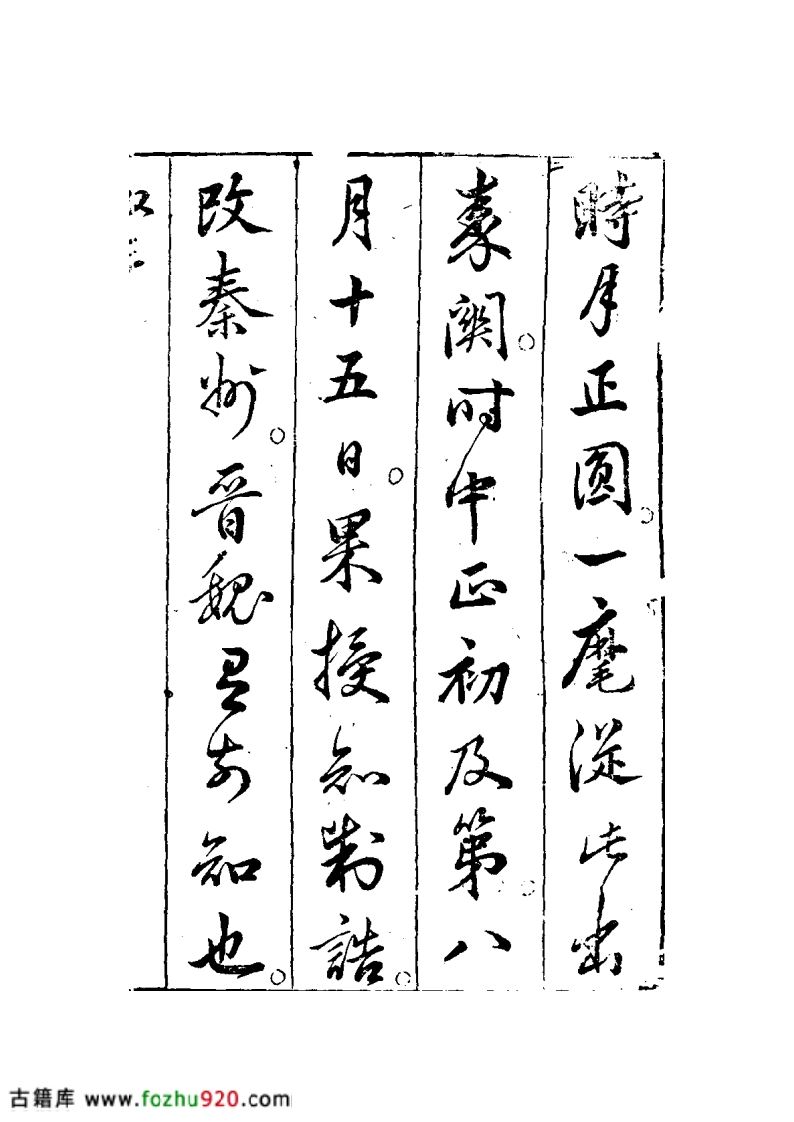 時月正圓一麾從此出
秦關时中正初及第八
月十五日果授知制誥
改秦州晋魏前知也
古籍库 www.fozhu920.com